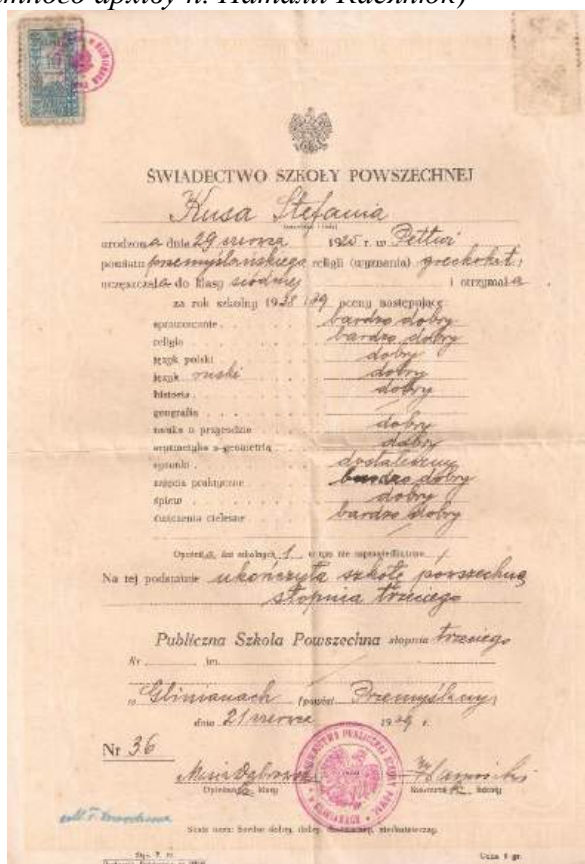 много архіву п. Наталії
ŚWIADECTWO SZKOŁY POWSZECHNEJ
Kusa Stefania
urodzona dnia 29 czerwca 1925 r. w
powiatu przemyślańskiego religii (wyznania) greckokat,
uczęszczała do klasy siódmej i otrzymała
za rok szkolny 1938/39 oceny następujące:
sprawowanie bardzo dobry
religia bardzo dobry
język polski dobry
język ruski dobry
historia dobry
geografia
nauka o przyrodzie dobry
arytmetyka z geometrią dobry
rysunki dostateczny
zajęcia praktyczne bardzo dobry
śpiew dobry
ćwiczenia cielesne bardzo dobry
Opuściła dni szkolnych 1 w tym nie usprawiedliwiono /
Na tej podstawie ukończyła szkołę powszechną
stopnia trzeciego
Publiczna Szkoła Powszechna stopnia trzeciego
Nr im.
w Glinianach (powiat Przemyślany)
dnia 21 czerwca 1939 r.
Nr 36
Opiekun klasy
Kierownik szkoły
Skala ocen: bardzo dobry, dobry, dostateczny, niedostateczny.
Cena 5 gr.